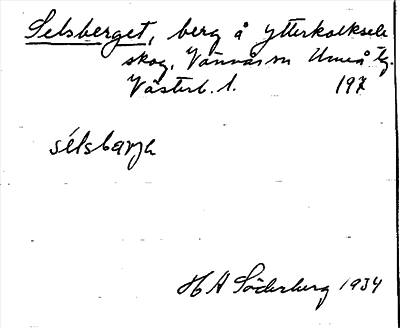 Selsberget, berg å Ytterkolksele
skog, Vännäs sn Umeå tg.
Västerb. l. 197
sélsbarja
H A Söderberg 1934